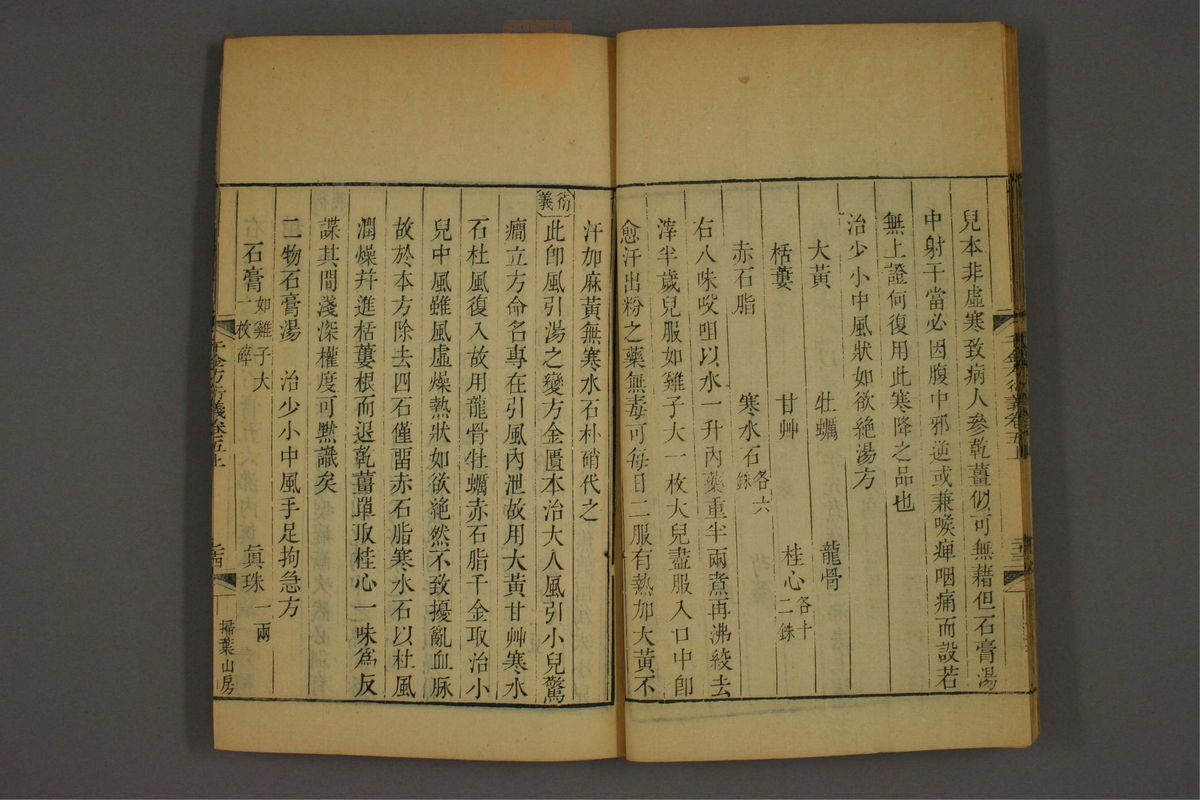 兒本非虛寒致病人參乾薑似可無藉但石膏湯
中射干當必因腹中邪逆或兼喉痺咽痛而設若
無上證何復用此寒降之品也
治少小中風狀如欲絕湯方
大黃 牡蠣 龍骨
栝蔞 甘艸 桂心各十二銖
赤石脂 寒水石各六銖
右八味㕮咀以水一升內藥重半兩煮再沸絞去
滓半歲兒服如雞子大一枚大兒盡服入口中卽
愈汗出粉之藥無毒可每日二服有熱加大黃不
汗加麻黃無寒水石朴硝代之
衍義 此卽風引湯之變方金匱本治大人風引小兒驚
癇立方命名專在引風內泄故用大黃甘艸寒水
石杜風復入故用龍骨牡蠣赤石脂千金取治小
兒中風雖風虛燥熱狀如欲絕然不致擾亂血脈
故於本方除去四石僅留赤石脂寒水石以杜風
潤燥幷進栝蔞根而退乾薑單取桂心一味爲反
諜其間淺深權度可默識矣
二物石膏湯 治少小中風手足拘急方
石膏如雞子大一枚碎 眞珠一兩
千金方衍義卷五上
掃葉山房